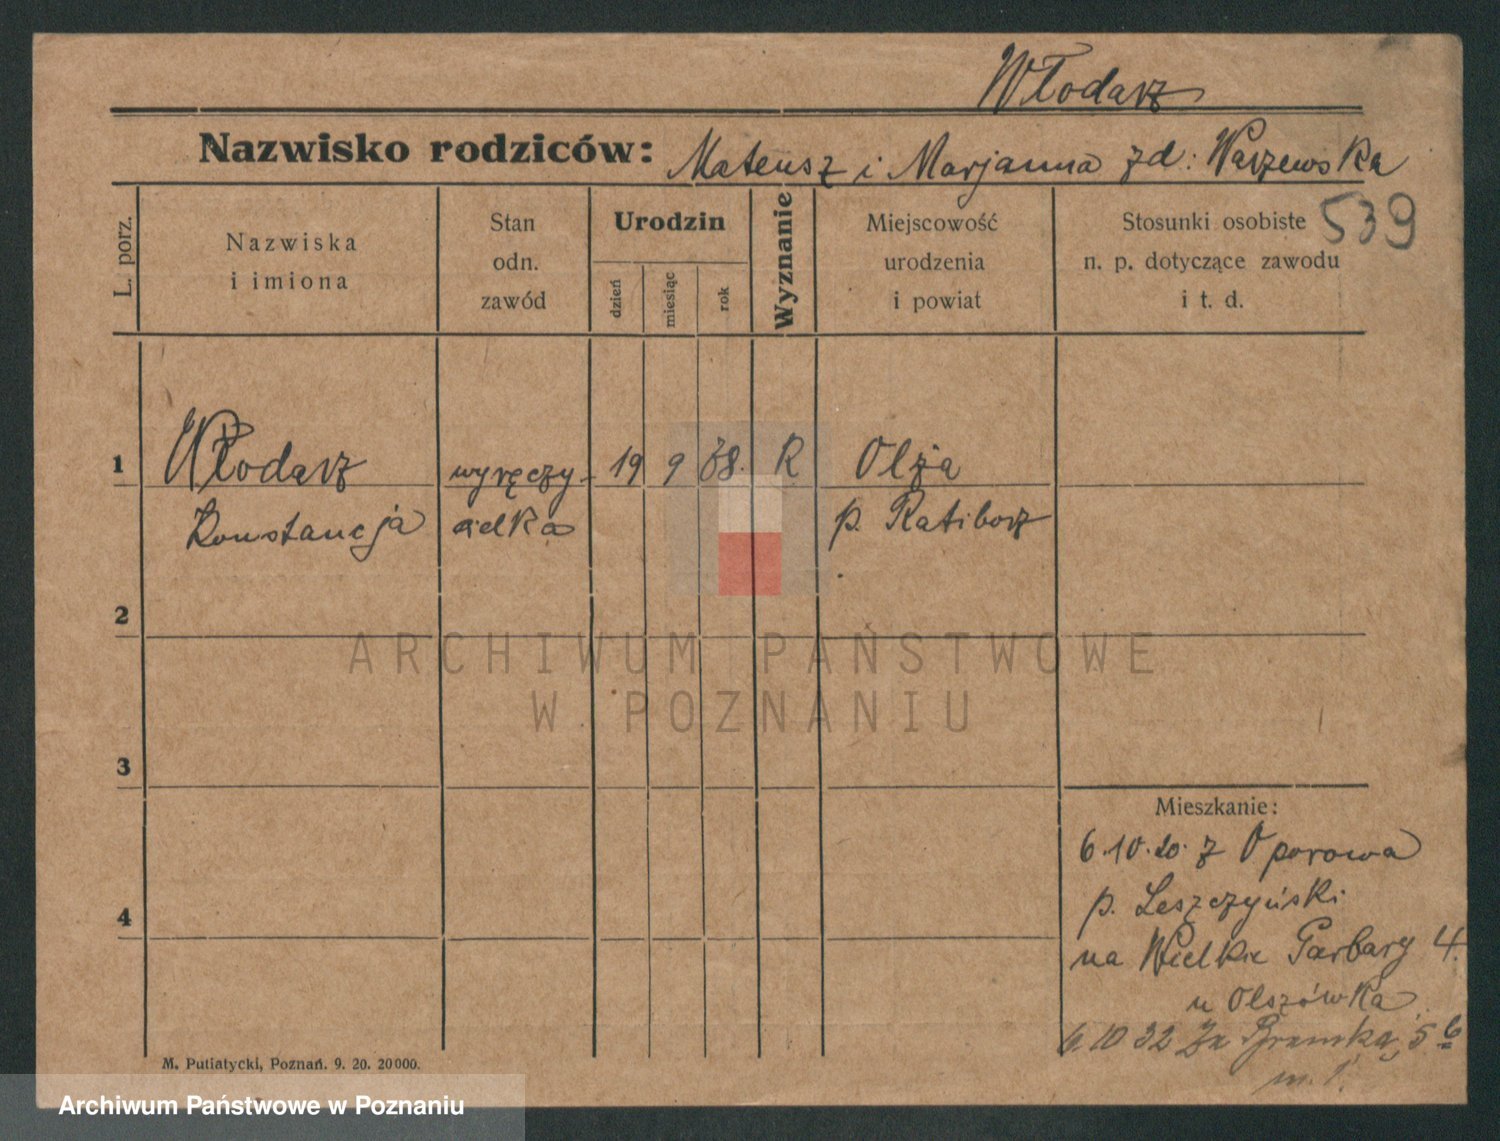 Włodarz
Nazwisko rodziców: Mateusz i Marjanna zd: Warzewska
539
L. porz.
Nazwiska
i imiona
Stan
odn.
zawód
Urodzin
dzień
miesiąc
rok
Wyznanie
Miejscowość
urodzenia
i powiat
Stosunki osobiste
n. p. dotyczące zawodu
i t. d.
1 Włodarz wyręczy- 19 9 88. R Olza
Konstancja cielka p. Ratiborz
2
3
4
Mieszkanie:
6.10.20. z Oporowa
p. Leszczyński
na Wielkie Garbary 4.
u Olszówka
6. 10 32 Za Bramką 5 b
m. 1.
M. Putiatycki, Poznań. 9. 20. 20000.
ARCHIWUM PAŃSTWOWE
W POZNANIU
Archiwum Państwowe w Poznaniu